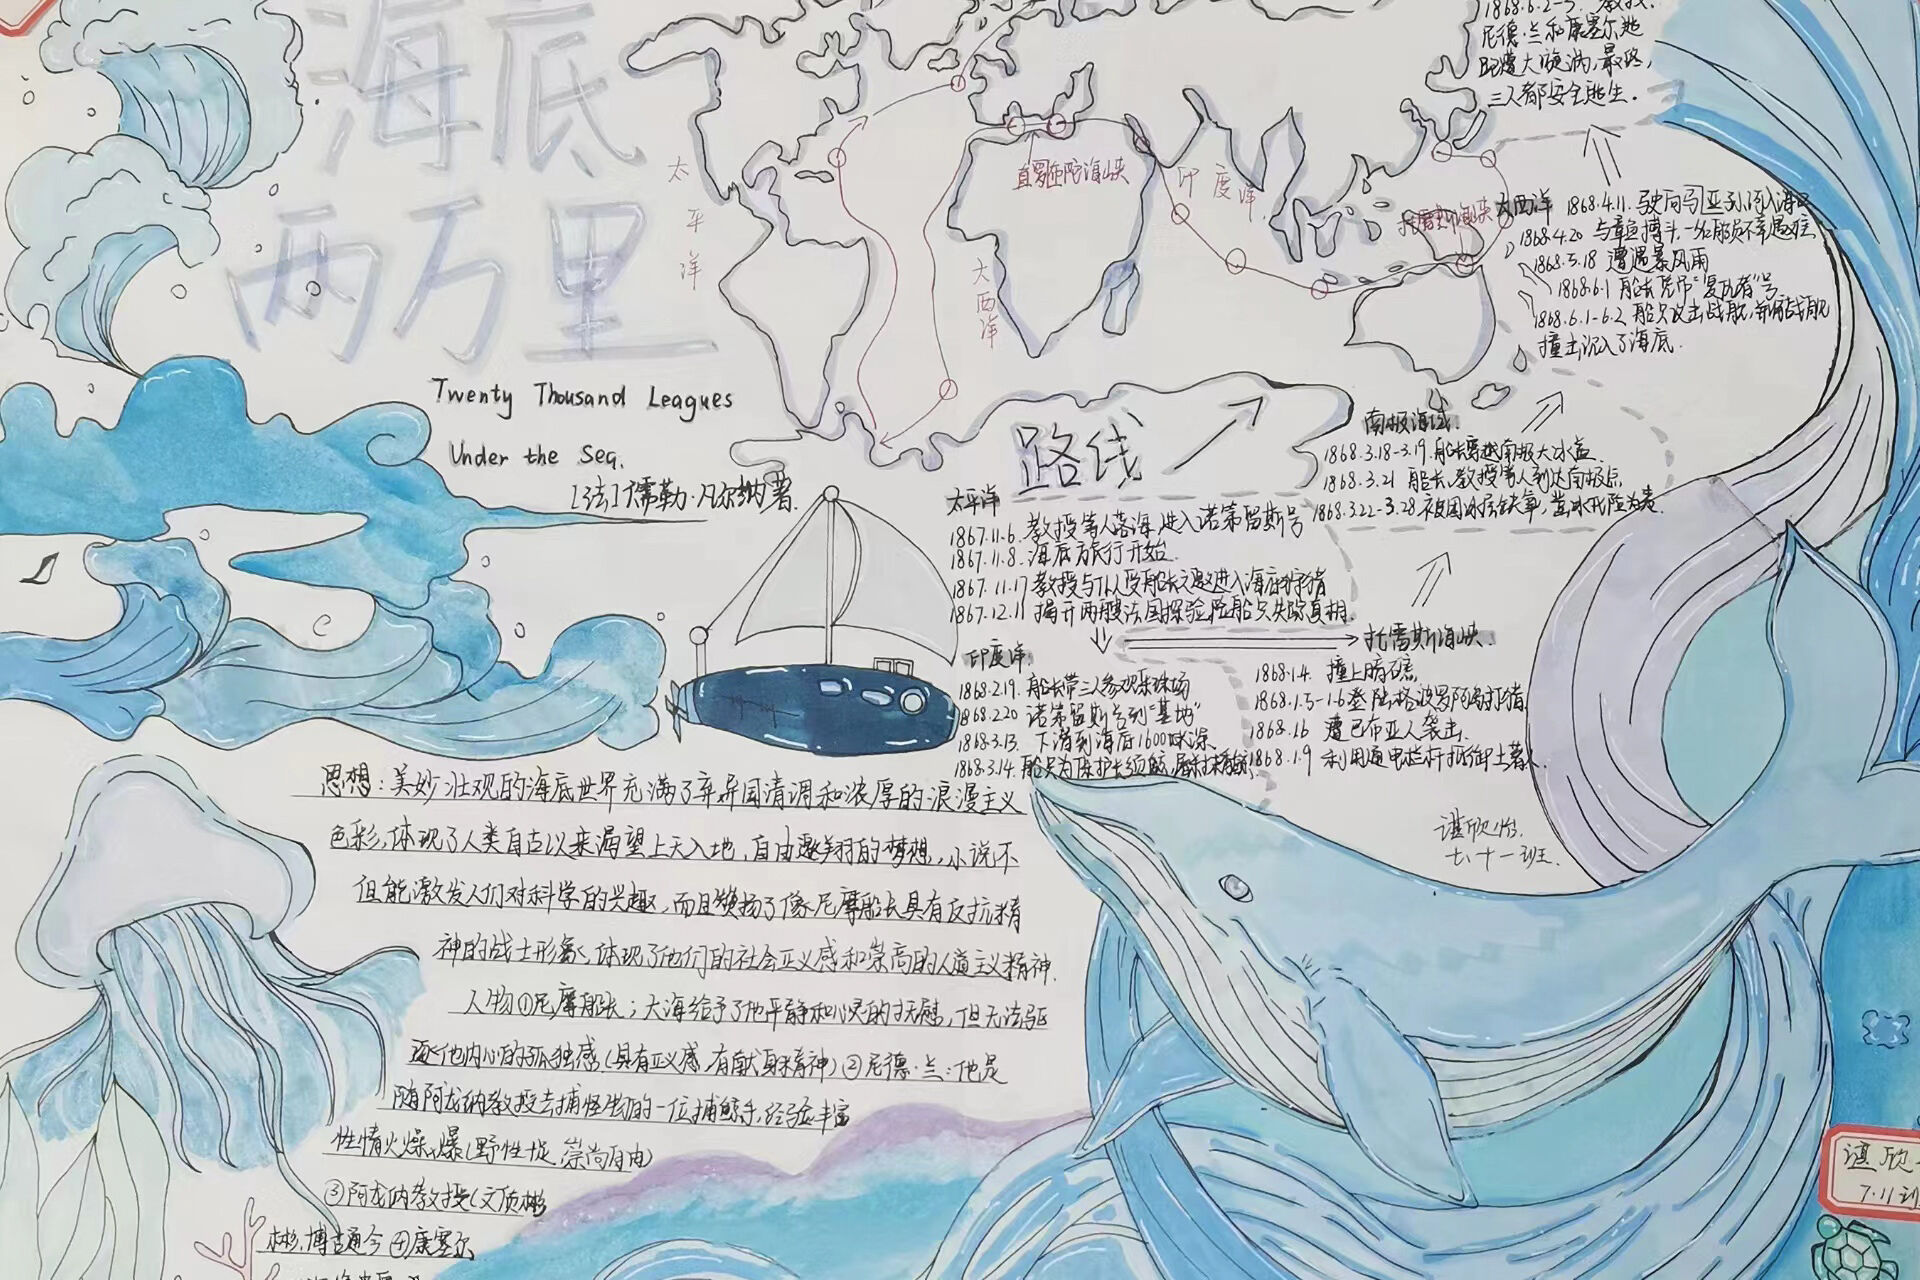 海底
两万里
Twenty Thousand Leagues
Under the Sea.
[法]儒勒·凡尔纳著.
太平洋
大西洋
直罗在陀海峡
印度洋
路线
1868.6.2-3. 教授.
尼德·兰和康塞尔逃
大漩涡,最终,
三人都安全逃生.
大西洋 1868.4.11. 驶向马亚孙河入海口
1868.4.20 与章鱼搏斗.一名船员不幸遇难.
1868.5.18 遭遇暴风雨
1868.6.1 船长凭吊“复仇者”号
1868.6.1-6.2 船只攻击战舰,战舰
撞击沉入了海底.
南极海域.
1868.3.18-3.19.船长穿越南极大冰盖.
1868.3.21 船长,教授等人到达南极点,
1868.3.22-3.28
太平洋
1867.11.6. 教授等人落海,进入诺第留斯号
1867.11.8. 海底旅行开始.
1867.11.17 教授与Tl人受船长之邀进入海底狩猎
1867.12.11 揭开两艘法国探险船只失踪真相.
托雷斯海峡.
1868.1.4. 撞上暗礁,
1868.1.5-1.6登陆格波罗阿岛打猎,
1868.1.6 遭巴布亚人袭击.
1868.1.9 利用通电栏杆抵御土著人.
印度洋.
1868.2.19. 船长带三人参观采珠场
1868.2.20 诺第留斯号到“基地”
1868.3.13. 下潜到海底1600米深.
1868.3.14. 船只为保护长须鲸,
思想:美妙壮观的海底世界充满了异国情调和浓厚的浪漫主义
色彩,体现了人类自古以来渴望上天入地,自由翱翔的梦想,小说不
但能激发人们对科学的兴趣,而且赞扬了像尼摩船长具有反抗精
神的战士形象,体现了他们的社会正义感和崇高的人道主义精神.
人物①尼摩船长;大海给予了他平静和心灵的抚慰,但无法驱
逐他内心的孤独感(具有正义感,有献身精神)②尼德·兰:他是
随阿龙纳教授去捕怪物的一位捕鲸手,经验丰富
性情火燥,爆(野性十足,崇尚自由)
③阿龙纳教授(文质彬
彬,博古通今④康塞尔
谌欣怡.
七、十一班.
谌欣
7.11班